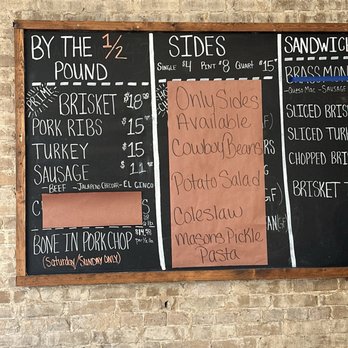 BY THE 1/2
POUND
PRIME
BRISKET $18
PORK RIBS $15
TURKEY $15
SAUSAGE $11
-BEEF -JALAPEÑO CHEDDAR -EL GINGO
C
BONE IN PORKCHOP $14.98
(Saturday/Sunday only)
SIDES
SINGLE $4 PINT $8 QUART $15
Only Sides
Available
Cowboy Beans
Potato Salad
Coleslaw
Masons Pickle
Pasta
GF)
SANDWICH
BRASS MON
SAUSAGE
SLICED BRIS
SLICED TUR
CHOPPED BRI
BRISKET